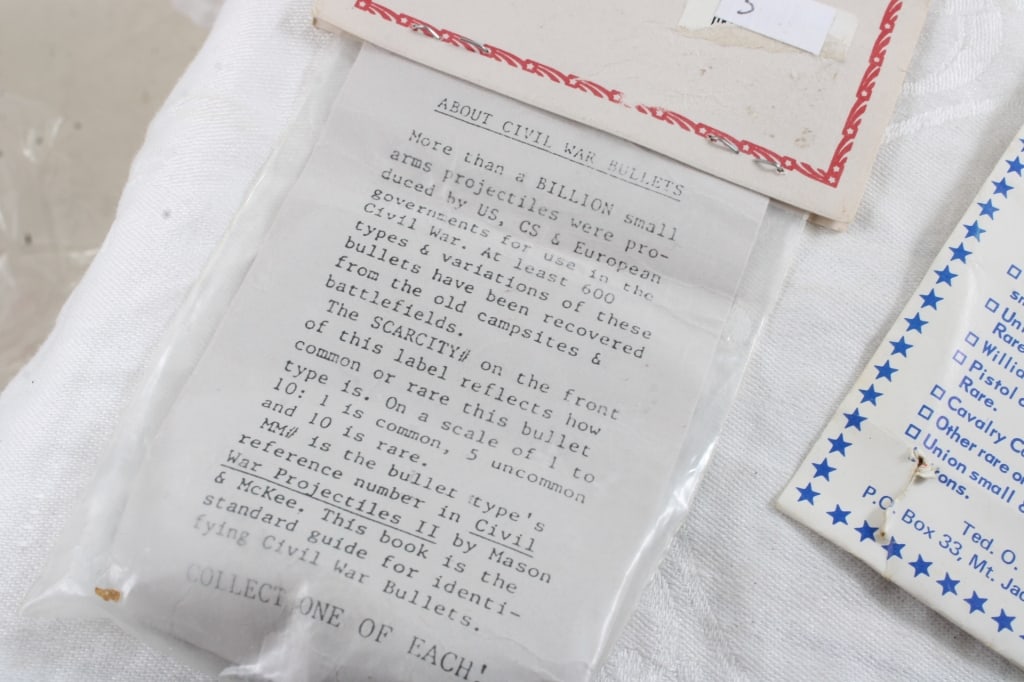 ABOUT CIVIL WAR BULLETS
More than a BILLION small
arms projectiles were pro-
duced by US, CS & European
governments for use in the
Civil War. At least 600
types & variations of these
bullets have been recovered
from the old campsites &
battlefields.
The SCARCITY# on the front
of this label reflects how
common or rare this bullet
type is. On a scale of 1 to
10: 1 is common, 5 uncommon
and 10 is rare.
MM# is the bullet type's
reference number in Civil
War Projectiles II by Mason
& McKee. This book is the
standard guide for identi-
fying Civil War Bullets.
COLLECT ONE OF EACH!
Rare
Pistol
Rare.
Cavalry
Other rare
Union small
Ted. O.
P.O. Box 33, Mt.